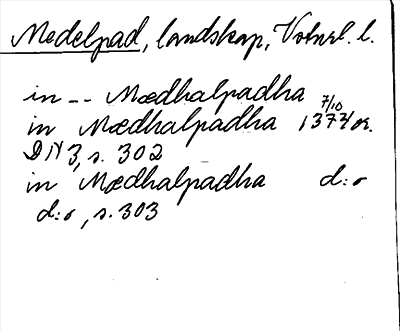 Medelpad, landskap, Vstnrl. l.
in -- Mædhalpadha
in Mædhalpadha 7/10 1377 or.
DN 3, s. 302
in Mædhalpadha d:o
d:o, s. 303